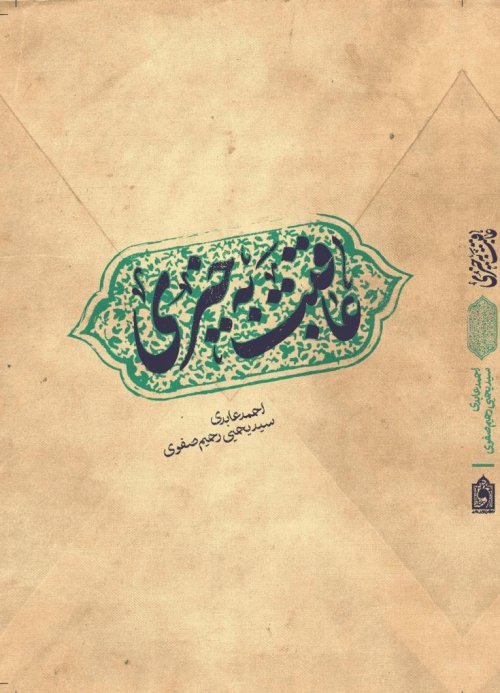 عاقبت به خیری
احمد عابدی
سید یحیی رحیم صفوی
عاقبت به خیری
احمد عابدی
سید یحیی رحیم صفوی